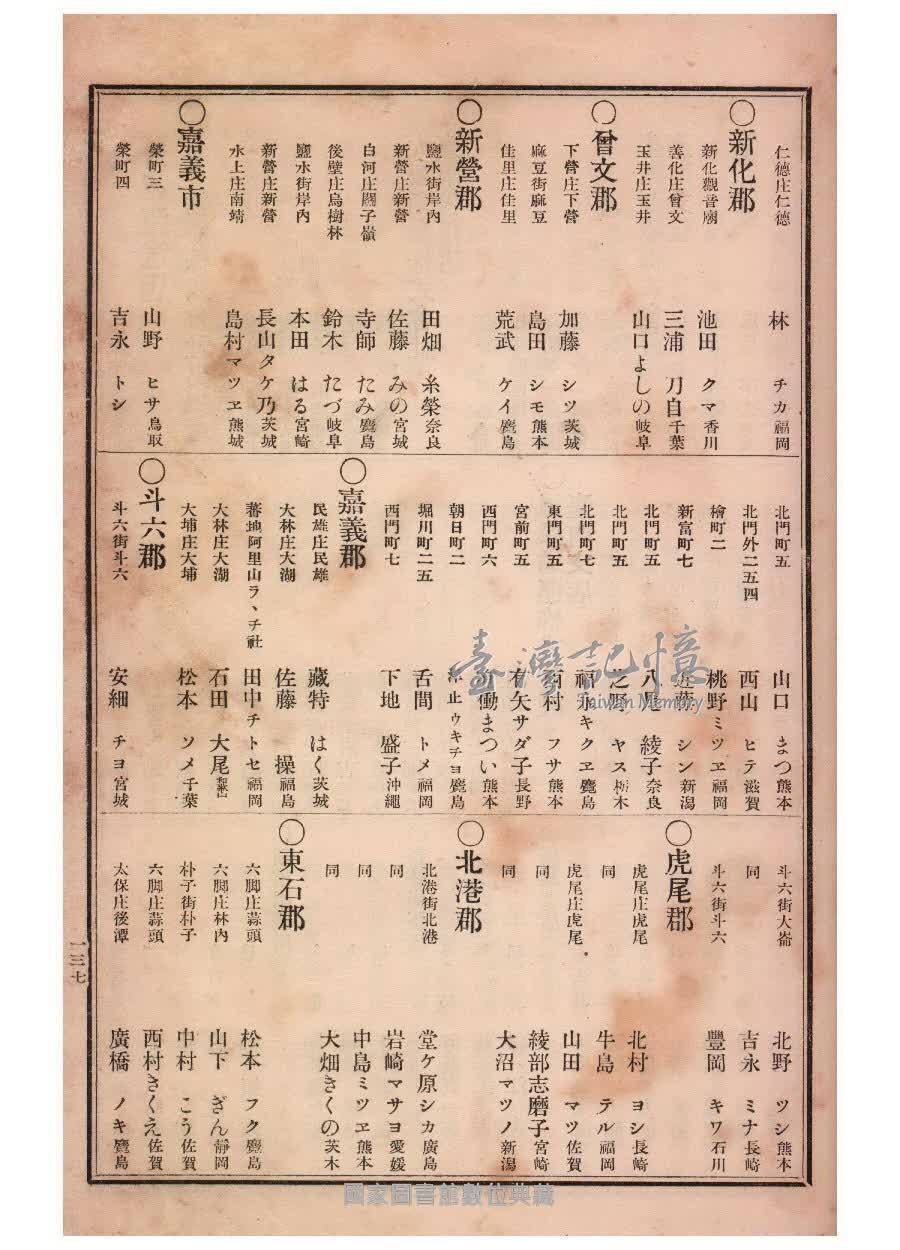 仁德庄仁德 林 チカ 福岡
〇新化郡
新化觀音廟 池田 クマ 香川
善化庄曾文 三浦 刀自 千葉
玉井庄玉井 山口よしの 岐阜
〇曾文郡
下營庄下營 加藤 シツ 茨城
麻豆街麻豆 島田 シモ 熊本
佳里庄佳里 荒武 ケイ 鹿島
〇新營郡
鹽水街岸內 田畑 糸榮 奈良
新營庄新營 佐藤 みの 宮城
白河庄關子嶺 寺師 たみ 鹿島
後壁庄烏樹林 鈴木 たづ 岐阜
鹽水街岸內 本田 はる 宮崎
新營庄新營 長山タケ乃 茨城
水上庄南靖 島村マツヱ 熊城
〇嘉義市
榮町三 山野 ヒサ 鳥取
榮町四 吉永 トシ
北門町五 山口 まつ 熊本
北門外二五四 西山 ヒテ 滋賀
檜町二 桃野ミツヱ 福岡
新富町七 近藤 シン 新潟
北門町五 八尾 綾子 奈良
北門町五 芝野 ヤス 栃木
北門町七 福永キクヱ 鹿島
東門町五 村 フサ 熊本
宮前町五 有矢サダ子 長野
西門町六 働まつい 熊本
朝日町二 止ウキチヨ 鹿島
堀川町二五 舌間 トメ 福岡
西門町七 下地 盛子 沖繩
〇嘉義郡
民雄庄民雄 藏特 はく 茨城
大林庄大湖 佐藤 操 福島
蕃地阿里山ラヽチ社 田中チトセ 福岡
大林庄大湖 石田 大尾 和歌山
大埔庄大埔 松本 ソメ 千葉
〇斗六郡
斗六街斗六 安細 チヨ 宮城
斗六街大崙 北野 ツシ 熊本
同 吉永 ミナ 長崎
斗六街斗六 豐岡 キワ 石川
〇虎尾郡
虎尾庄虎尾 北村 ヨシ 長崎
同 牛島 テル 福岡
虎尾庄虎尾 山田 マツ 佐賀
同 綾部志磨子 宮崎
同 大沼マツノ 新潟
〇北港郡
北港街北港 堂ケ原シカ 廣島
同 岩崎マサヨ 愛媛
同 中島ミツヱ 熊本
同 大畑きくの 茨木
〇東石郡
六脚庄蒜頭 松本 フク 鹿島
六脚庄林內 山下 ぎん 靜岡
朴子街朴子 中村 こう 佐賀
六脚庄蒜頭 西村きくえ 佐賀
太保庄後潭 廣橋 ノキ 鹿島
一三七
臺灣記憶
Taiwan Memory
國家圖書館數位典藏